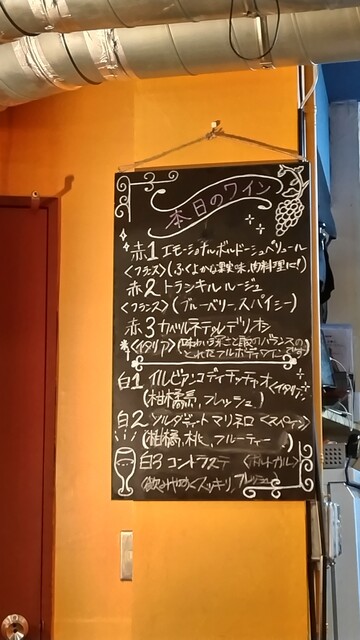 本日のワイン
赤1 エモーショナルボルドーシュペリュール
<フランス>(ふくよかな果実味、肉料理に!)
赤2 トランキルルージュ
<フランス>(ブルーベリー、スパイシー)
赤3 カバルネデルデリオン
<イタリア>(味わい深さと酸のバランスの
とれたフルボディワインです)
白1 イルビアンコディチッチオ<イタリア>
(柑橘系、フレッシュ)
白2 ソルダジャートマリネロ <スペイン>
(柑橘、桃、フルーティー
白3 コントラステ <ポルトガル>
(飲みやすく、スッキリ、フレッシュ